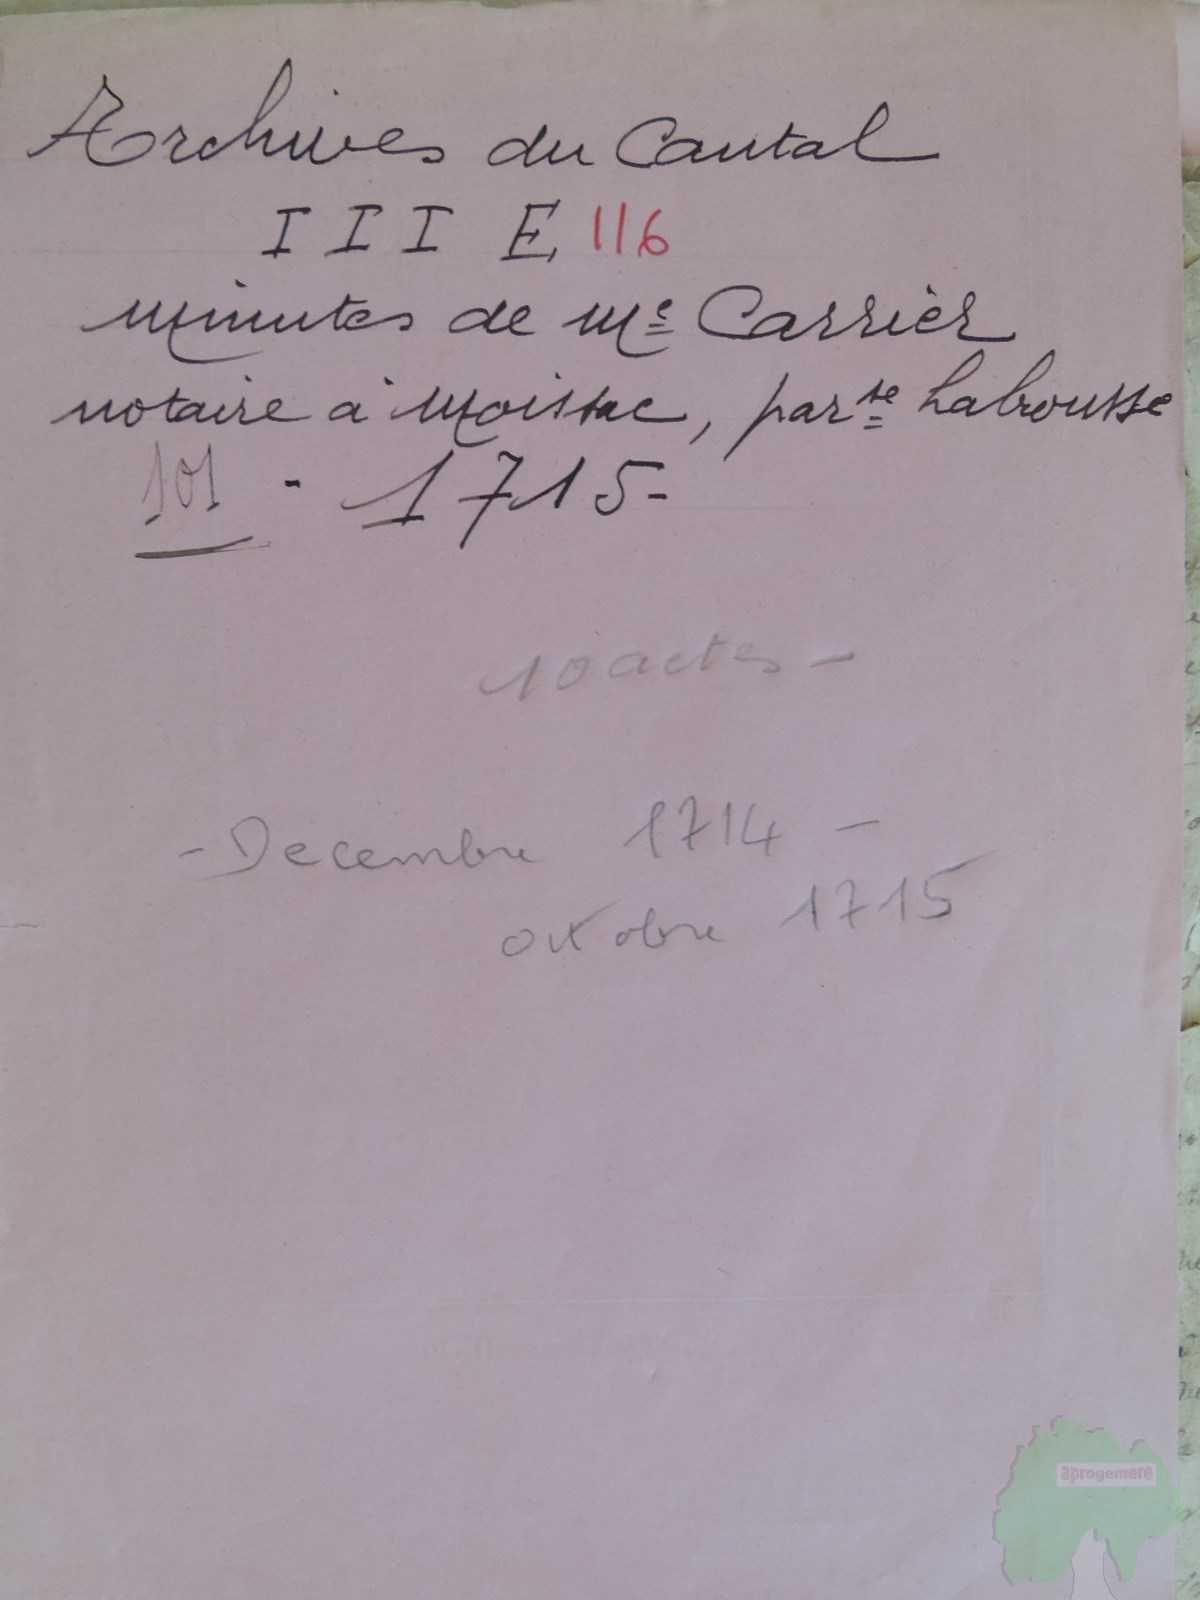 Archives du Cantal
III E 116
minutes de Me Carrier
notaire à Moissac, parsse Labrousse
101 - 1715-
10 actes -
- Decembre 1714 -
octobre 1715
aprogemere